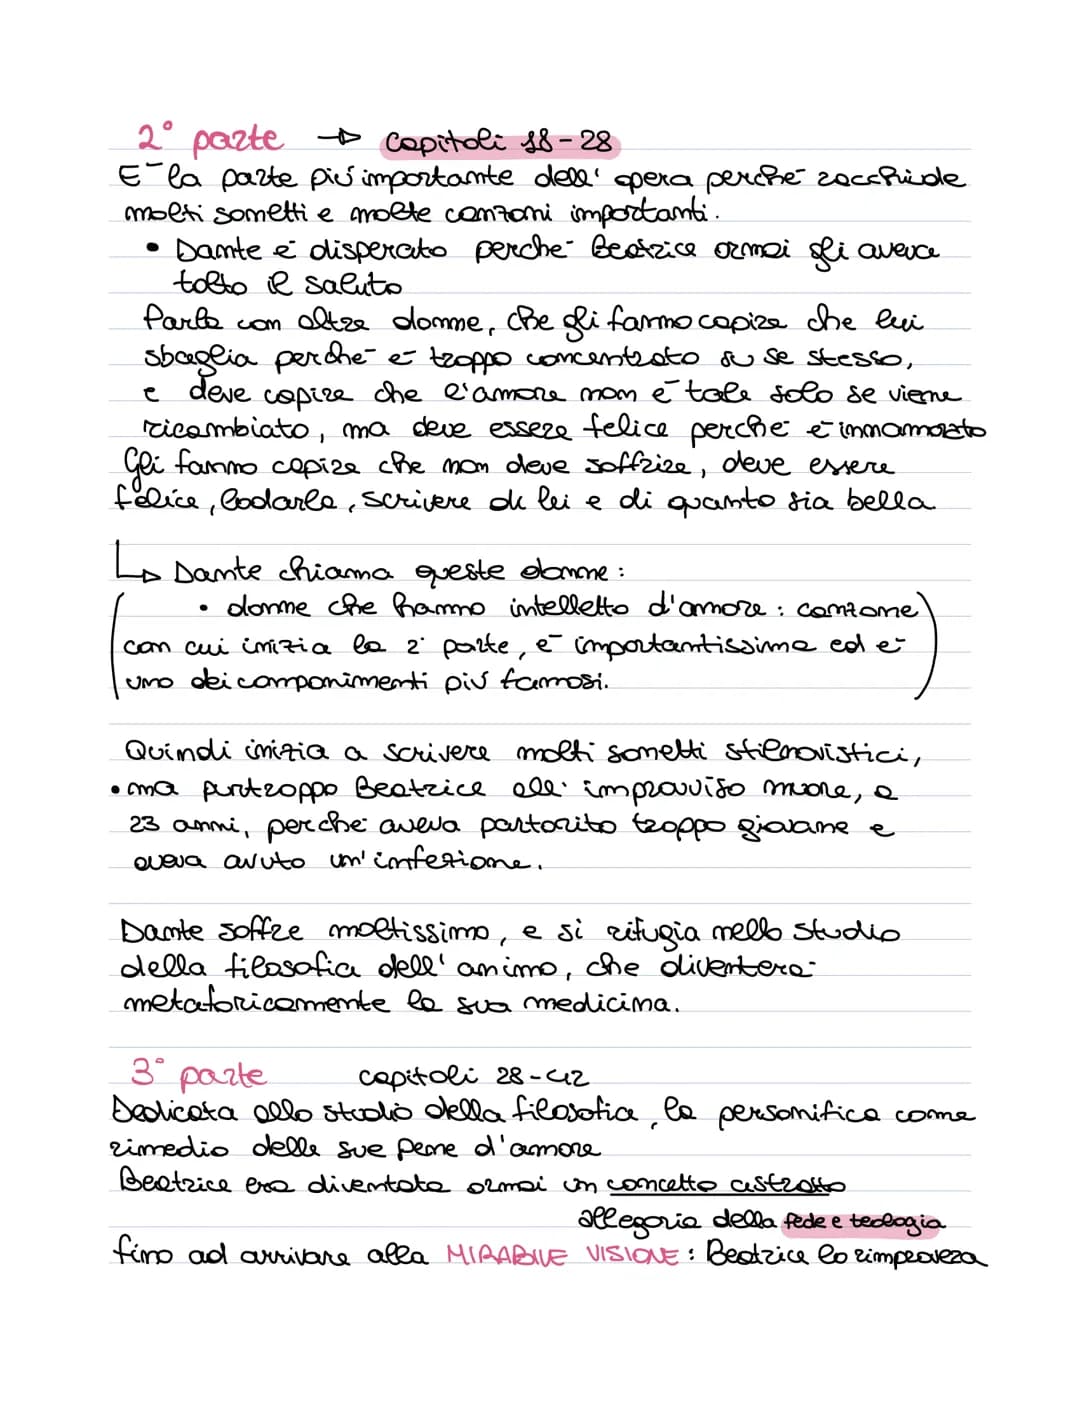 2° parte → capitoli 18-28
E' la parte più importante dell' opera perché racchiude
molti sonetti e molte canzoni importanti.
• Dante è disperato perché Beatrice ormai gli aveva
tolto il saluto
Parla con altre donne, che gli fanno capire che lui
sbaglia perché è troppo concentrato su se stesso,
e deve capire che l'amore non è tale solo se viene
ricambiato, ma deve essere felice perché è innamorato
Gli fanno capire che non deve soffrire, deve essere
felice, lodarla, scrivere di lei e di quanto sia bella
↳ Dante chiama queste donne:
• donne che hanno intelletto d'amore: canzone
con cui inizia la 2° parte, è importantissima ed è
uno dei componimenti più famosi.
Quindi inizia a scrivere molti sonetti stilnovistici,
• ma purtroppo Beatrice all' improvviso muore, a
23 anni, perché aveva partorito troppo giovane e
aveva avuto un' infezione.
Dante soffre moltissimo, e si rifugia nello studio
della filosofia dell' animo, che diventerà
metaforicamente la sua medicina.
3° parte capitoli 28-42
Dedicata allo studio della filosofia, la personifica come
rimedio delle sue pene d'amore
Beatrice era diventata ormai un concetto astratto
allegoria della fede e teologia
fino ad arrivare alla MIRABILE VISIONE: Beatrice lo rimprovera